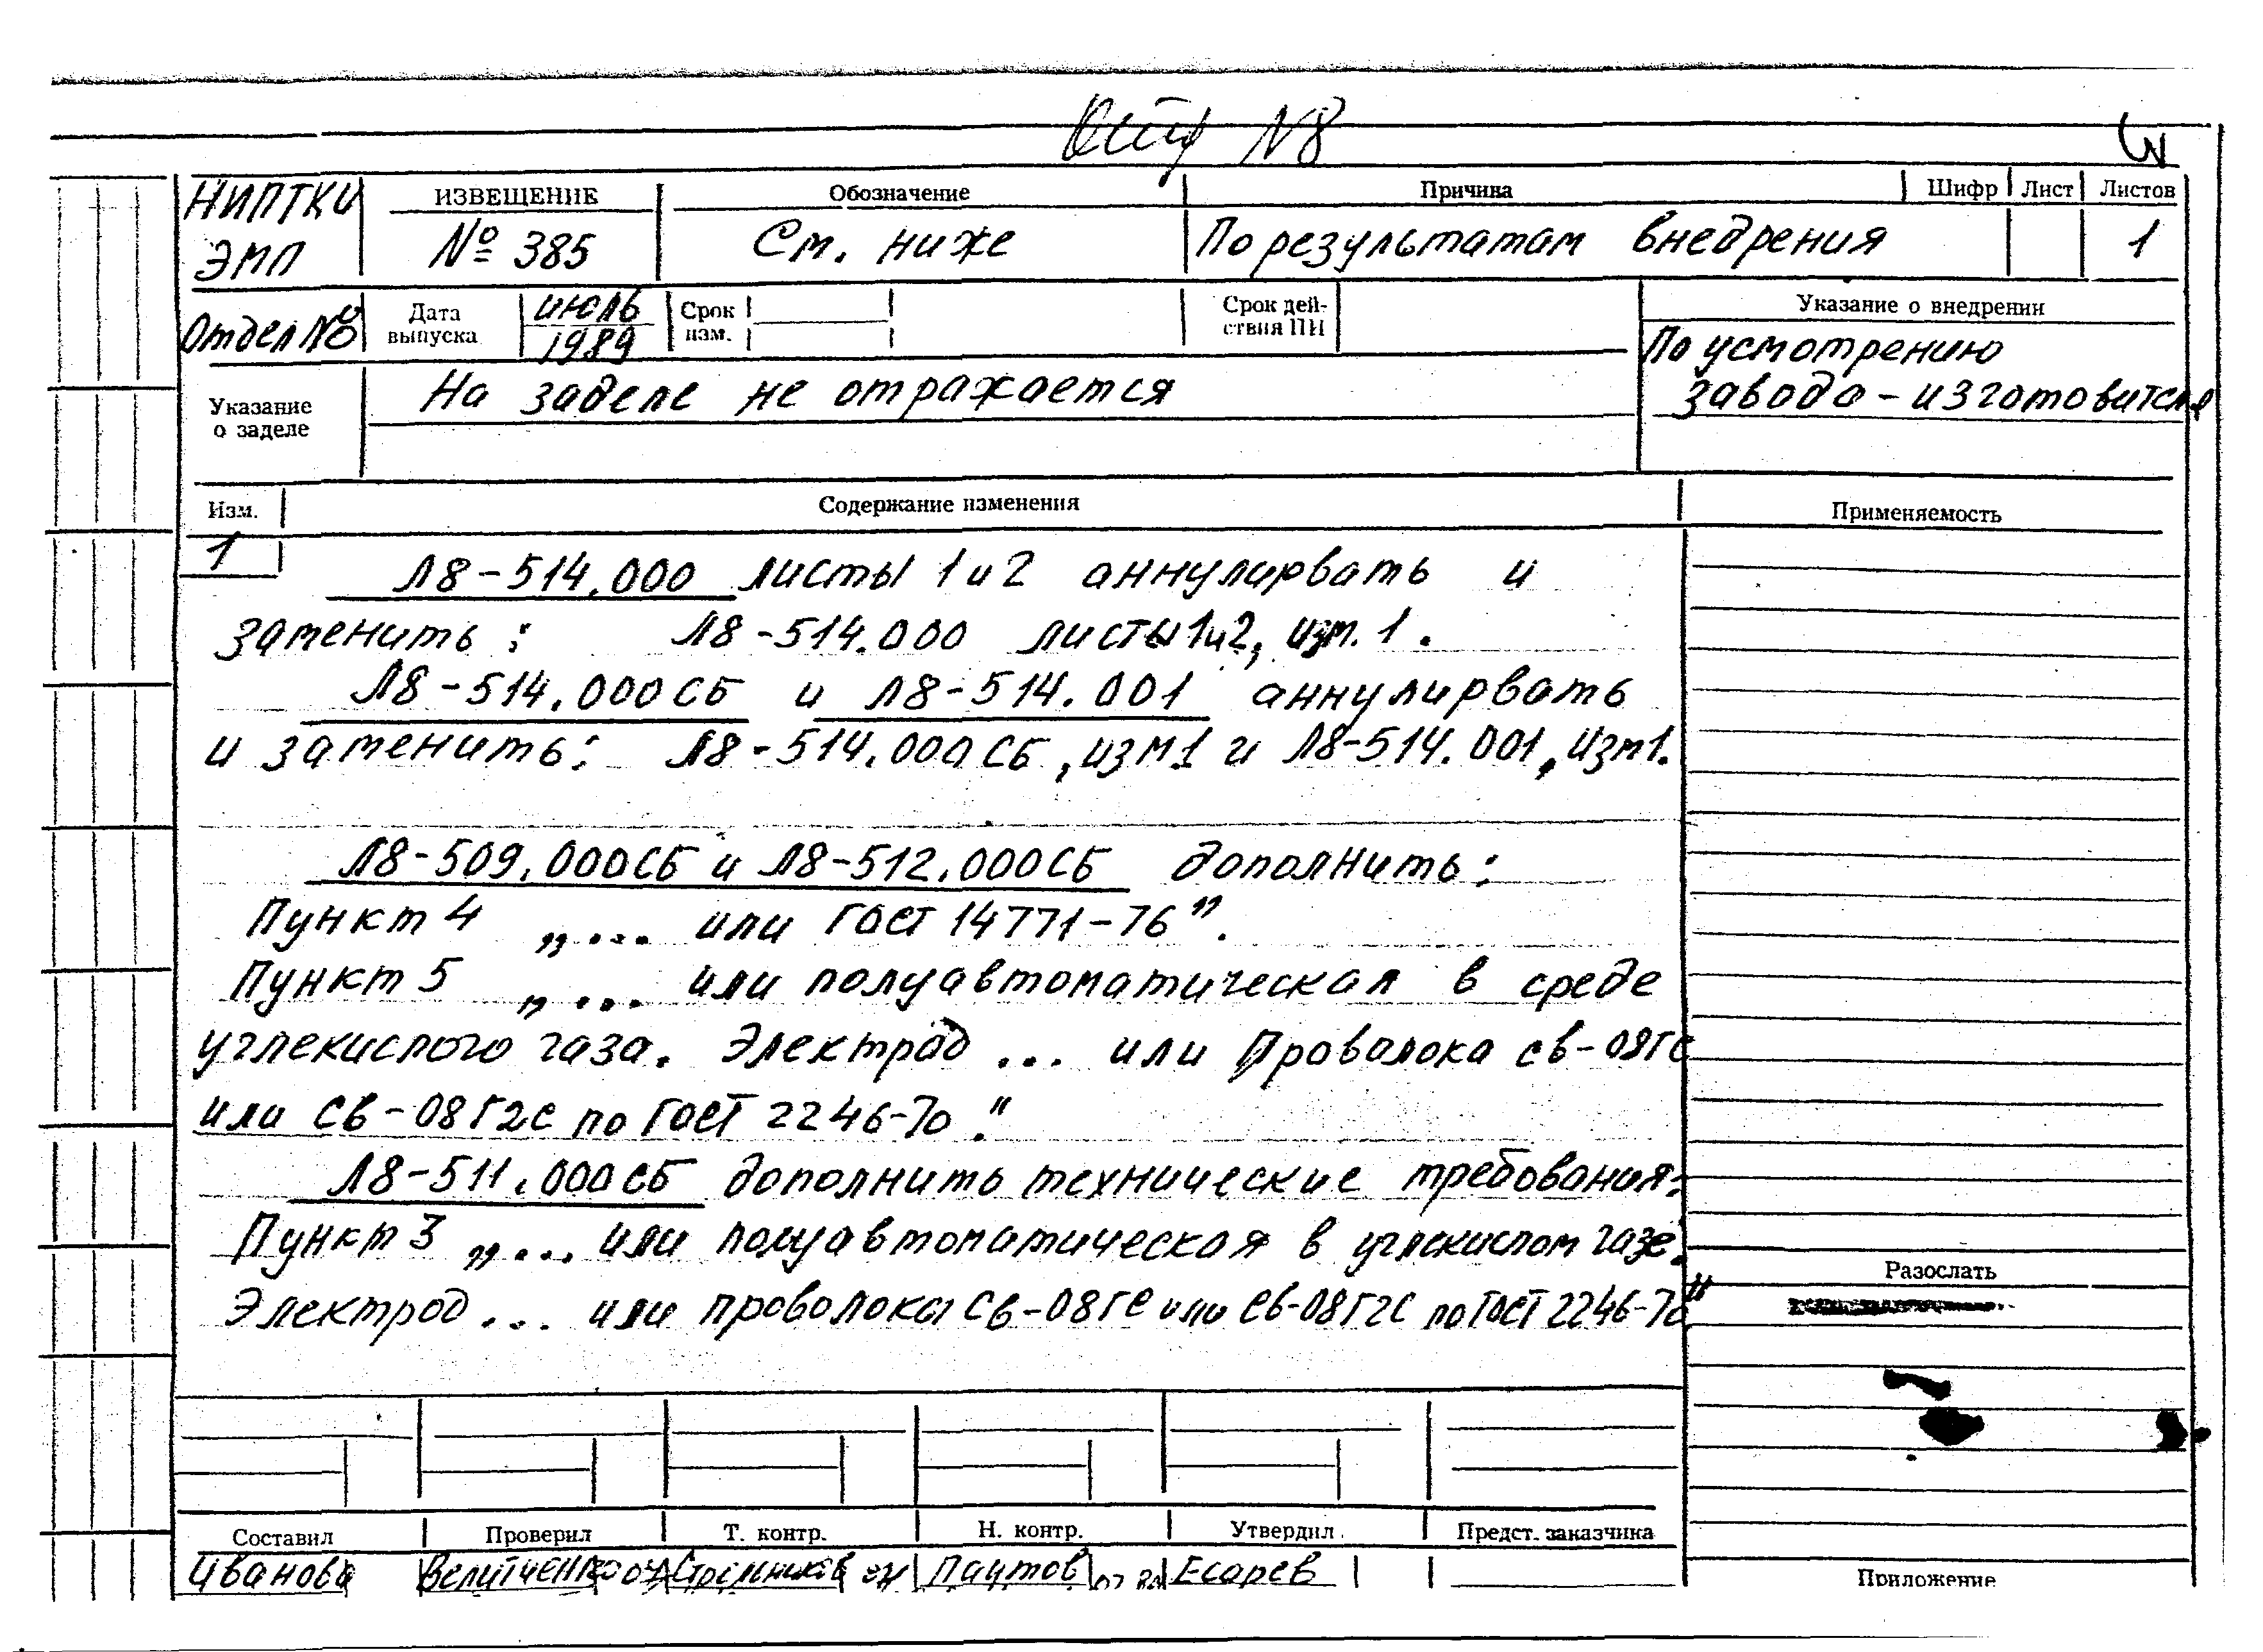 N8
НИПТКИ ИЗВЕЩЕНИЕ Обозначение Причина Шифр Лист Листов
ЭМП № 385 См. ниже По результатам внедрения 1
Отдел №8 Дата выпуска июль 1989 Срок изм. Срок дей-ствия ПИ Указание о внедрении
По усмотрению
завода - изготовителя
Указание о заделе На заделе не отражается
Изм. Содержание изменения Применяемость
1
Л8-514.000 листы 1 и 2 аннулирвать и
заменить : Л8-514.000 листы 1и2, изм. 1.
Л8-514.000СБ и Л8-514.001 аннулирвать
и заменить: Л8-514.000СБ, изм1 и Л8-514.001, изм1.
Л8-509.000СБ и Л8-512.000СБ дополнить:
Пункт 4 „... или ГОСТ 14771-76".
Пункт 5 „... или полуавтоматическая в среде
углекислого газа. Электрод ... или Проволока св-08ГС
или Св-08Г2С по ГОСТ 2246-70."
Л8-511.000СБ дополнить технические требования:
Пункт 3 „... или полуавтоматическая в углекислом газе.
Электрод ... или проволока Св-08ГС или Св-08Г2С по ГОСТ 2246-70"
Разослать
Составил Проверил Т. контр. Н. контр. Утвердил Предст. заказчика
Иванова Велитченко Стрельников Паутов Есарев
Приложение